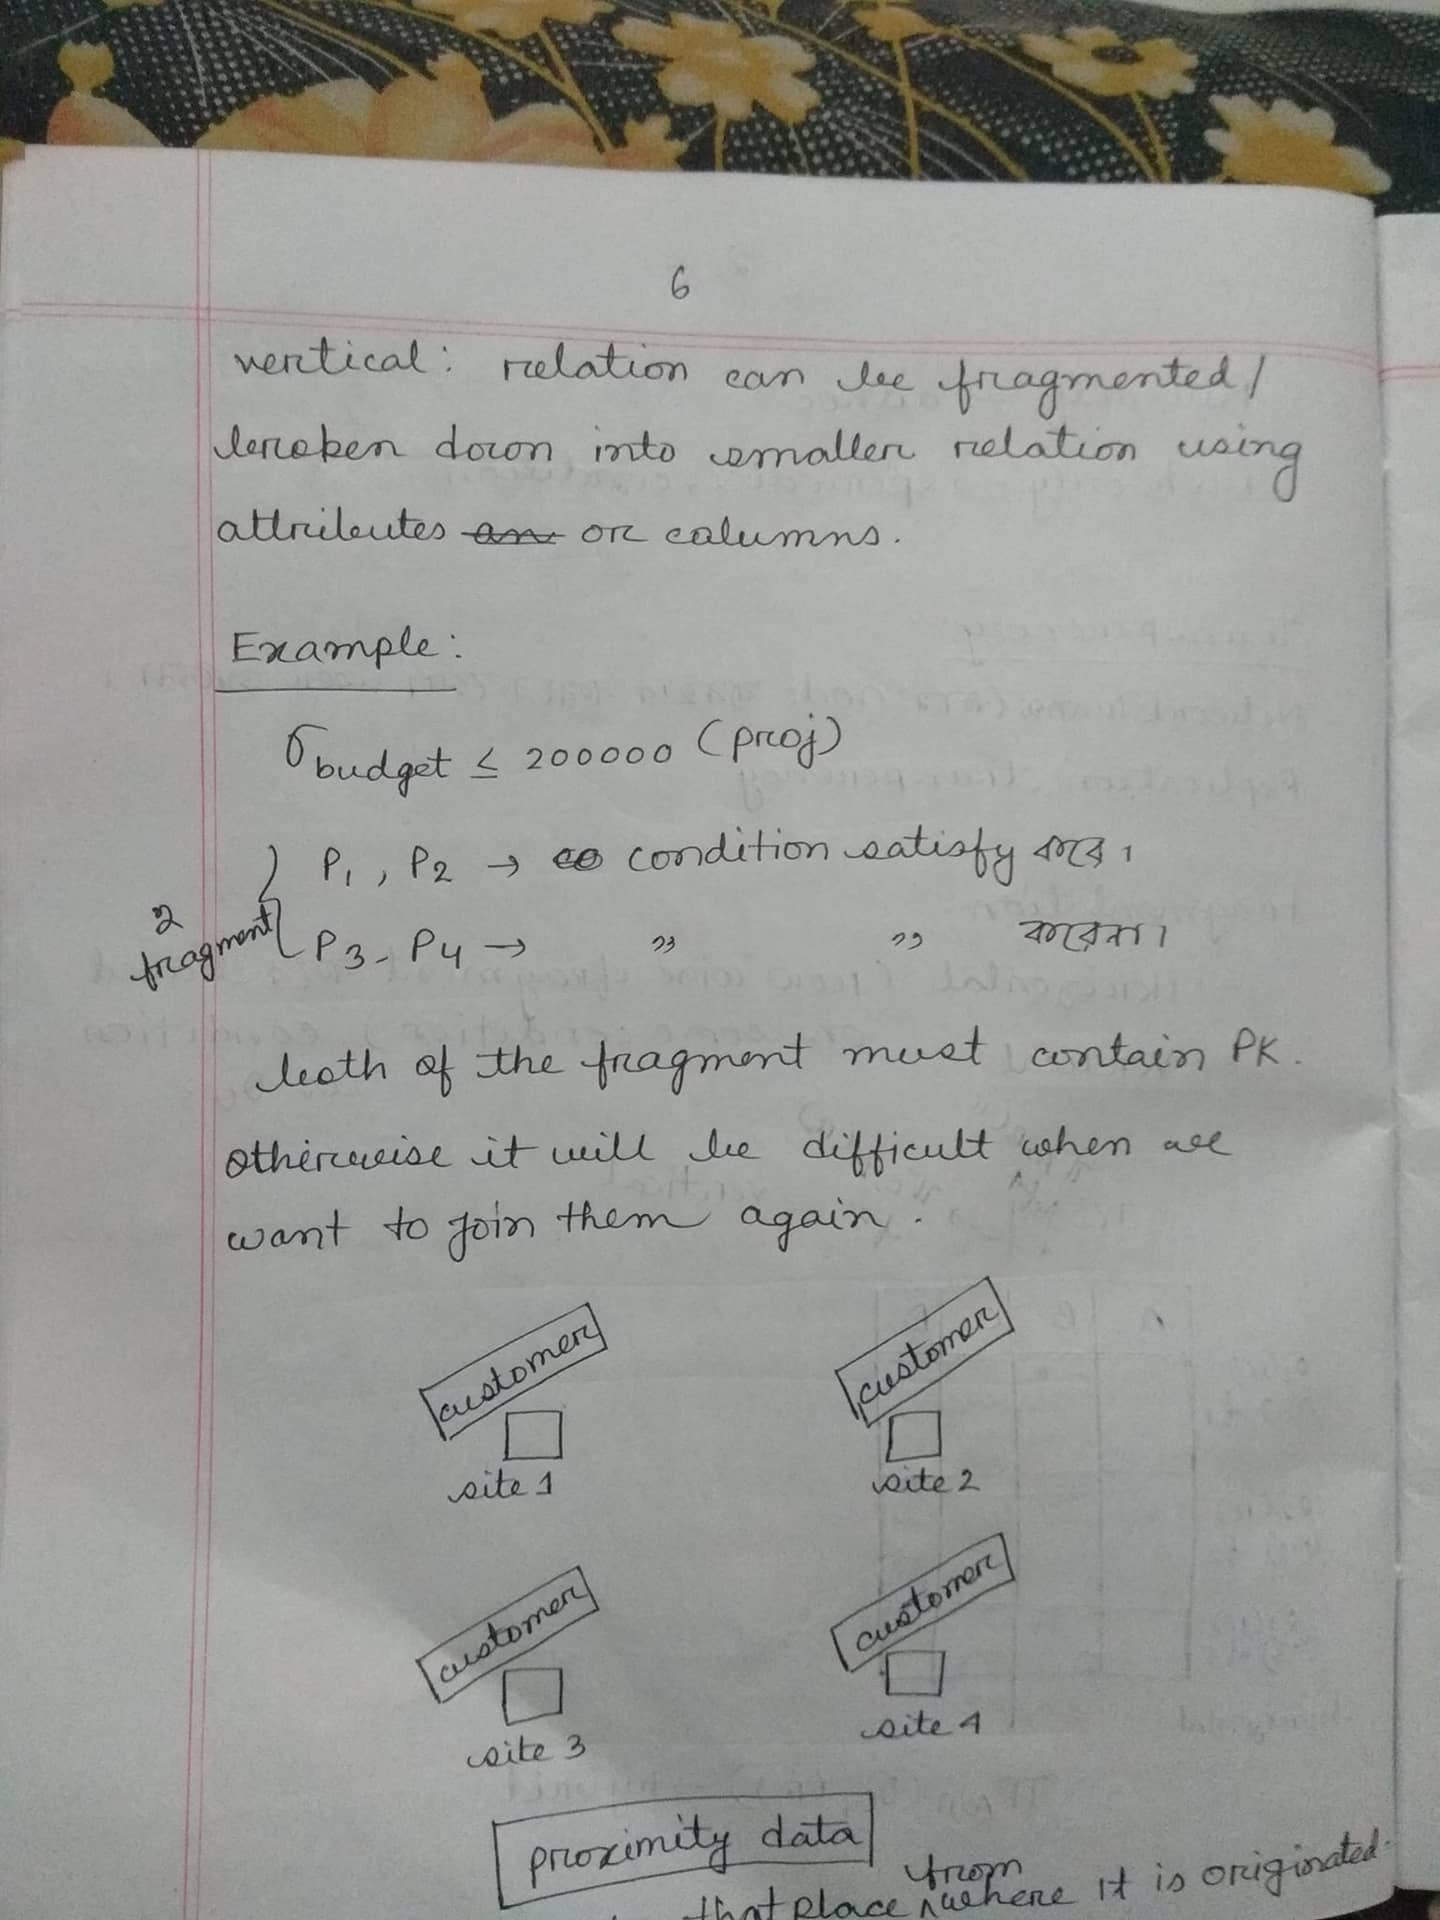 6
vertical: relation can be fragmented/
broken down into smaller relation using
attributes an or columns.
Example:
σ budget ≤ 200000 (proj)
P1, P2 → co condition satisfy করে।
2
fragment
P3, P4 → " " করেনা।
both of the fragment must contain PK.
otherwise it will be difficult when we
want to join them again.
customer customer
site 1 site 2
customer customer
site 3 site 4
proximity data
from
that place ^ where it is originated.